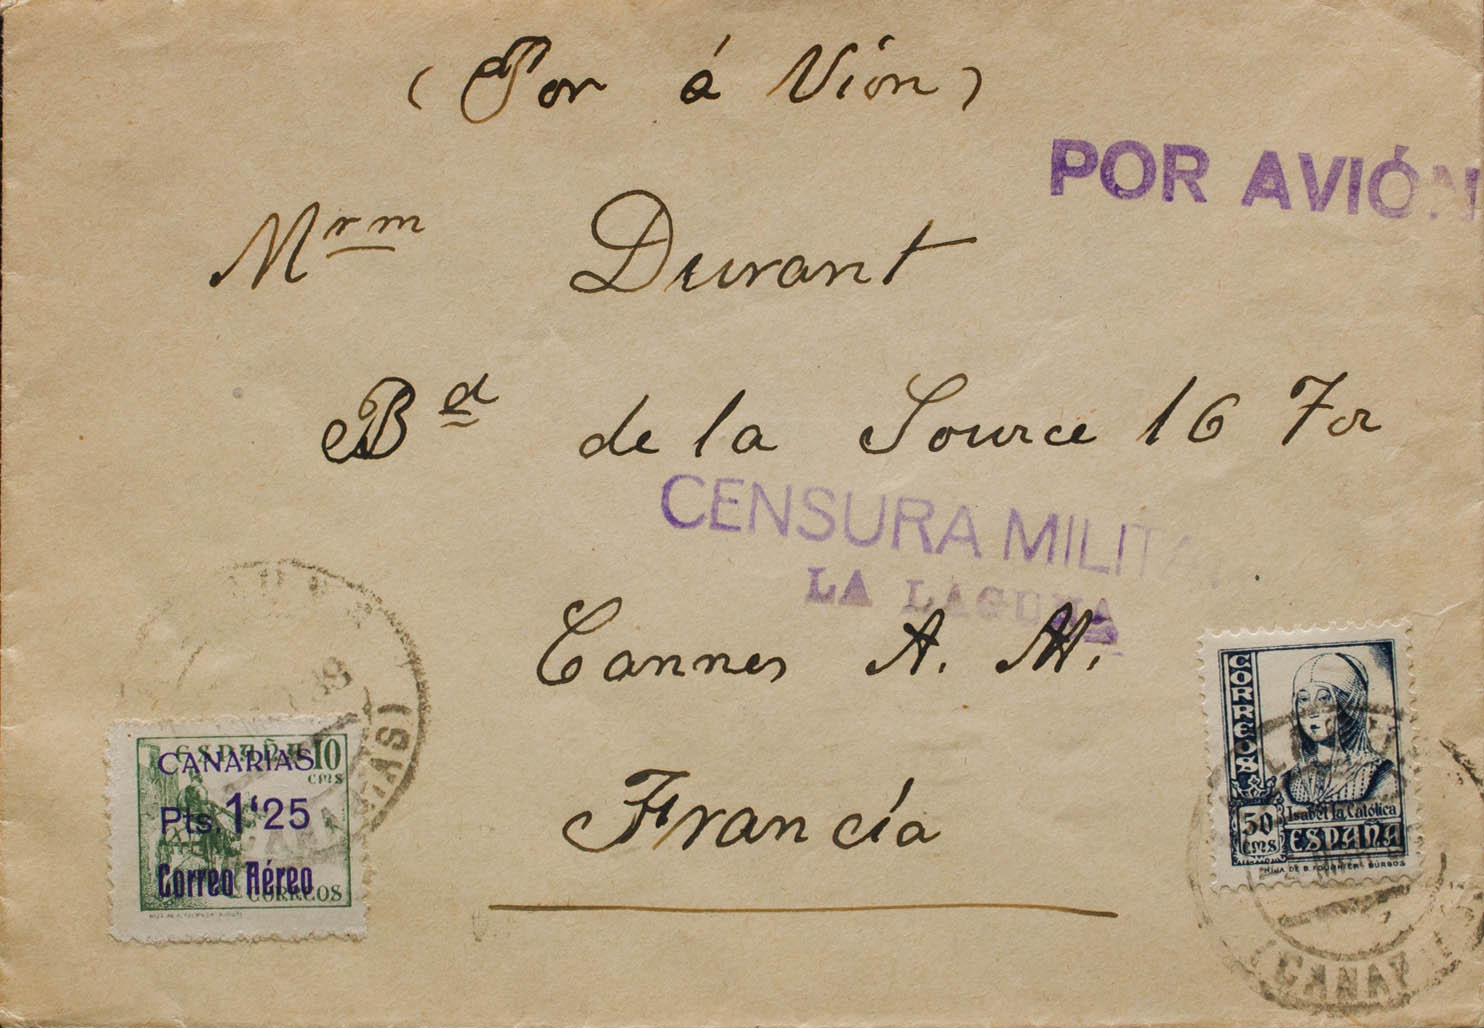 (Por á Vión)
POR AVIÓN
Mrm Durant
Bd de la Source 16 For
CENSURA MILITA
LA LAGUNA
Cannes A. M.
Francía
39
CANARIAS
ESPAÑA 10
CMS
Pts 1'25
Correo Aéreo
CORREOS
CORREOS
50
CMS
Isabel la Católica
ESPAÑA
HIJA DE B. FOURNIER BURGOS
CANA